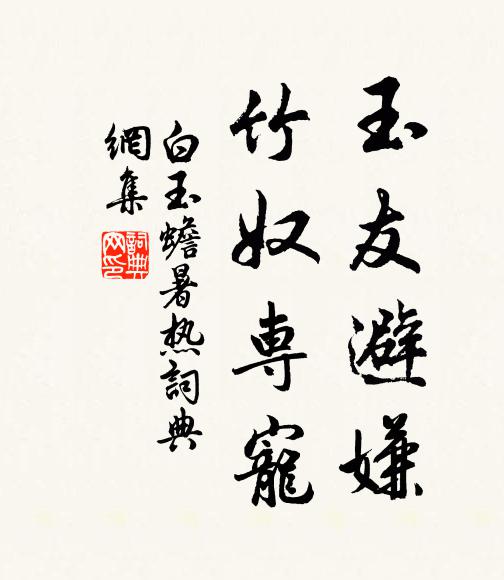 玉友避嫌
竹奴専寵
白玉蟾暑热詞典
網集
詞典
网印